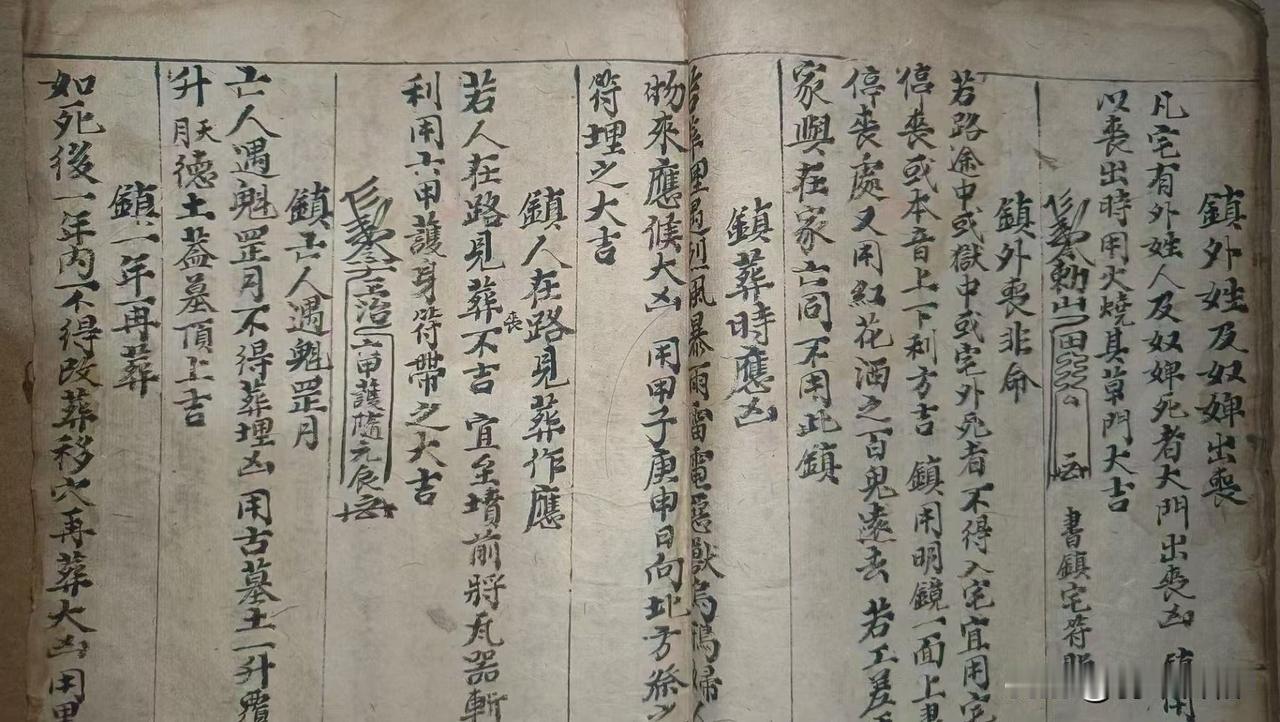 鎮外姓及奴婢出喪
凡宅有外姓人及奴婢死者大門出喪凶 鎮用
以喪出時用火燒其草門大吉
勅 書鎮宅符
鎮外喪非命
若路途中或獄中或宅外死者不得入宅宜用宅
停喪或本音上下利方吉 鎮用明鏡一面上書
停喪處又用紅花酒之百鬼遠去 若工差
家與在家亡同不用此鎮
鎮葬時應凶
若葬埋遇烈風暴雨雷電惡獸烏鴉婦人
物來應候大凶 用甲子庚申日向北方祭之
符埋之大吉
鎮人在路見葬作應
若人在路見葬喪不吉 宜至墳前將瓦器斬
利用六甲護身符帶之大吉
六甲護隨元辰
鎮亡人遇魁罡月
亡人遇魁罡月不得葬埋凶 用古墓土一升
升天月德土蓋墓頂上吉
鎮一年再葬
如死後一年內不得改葬移穴再葬大凶用